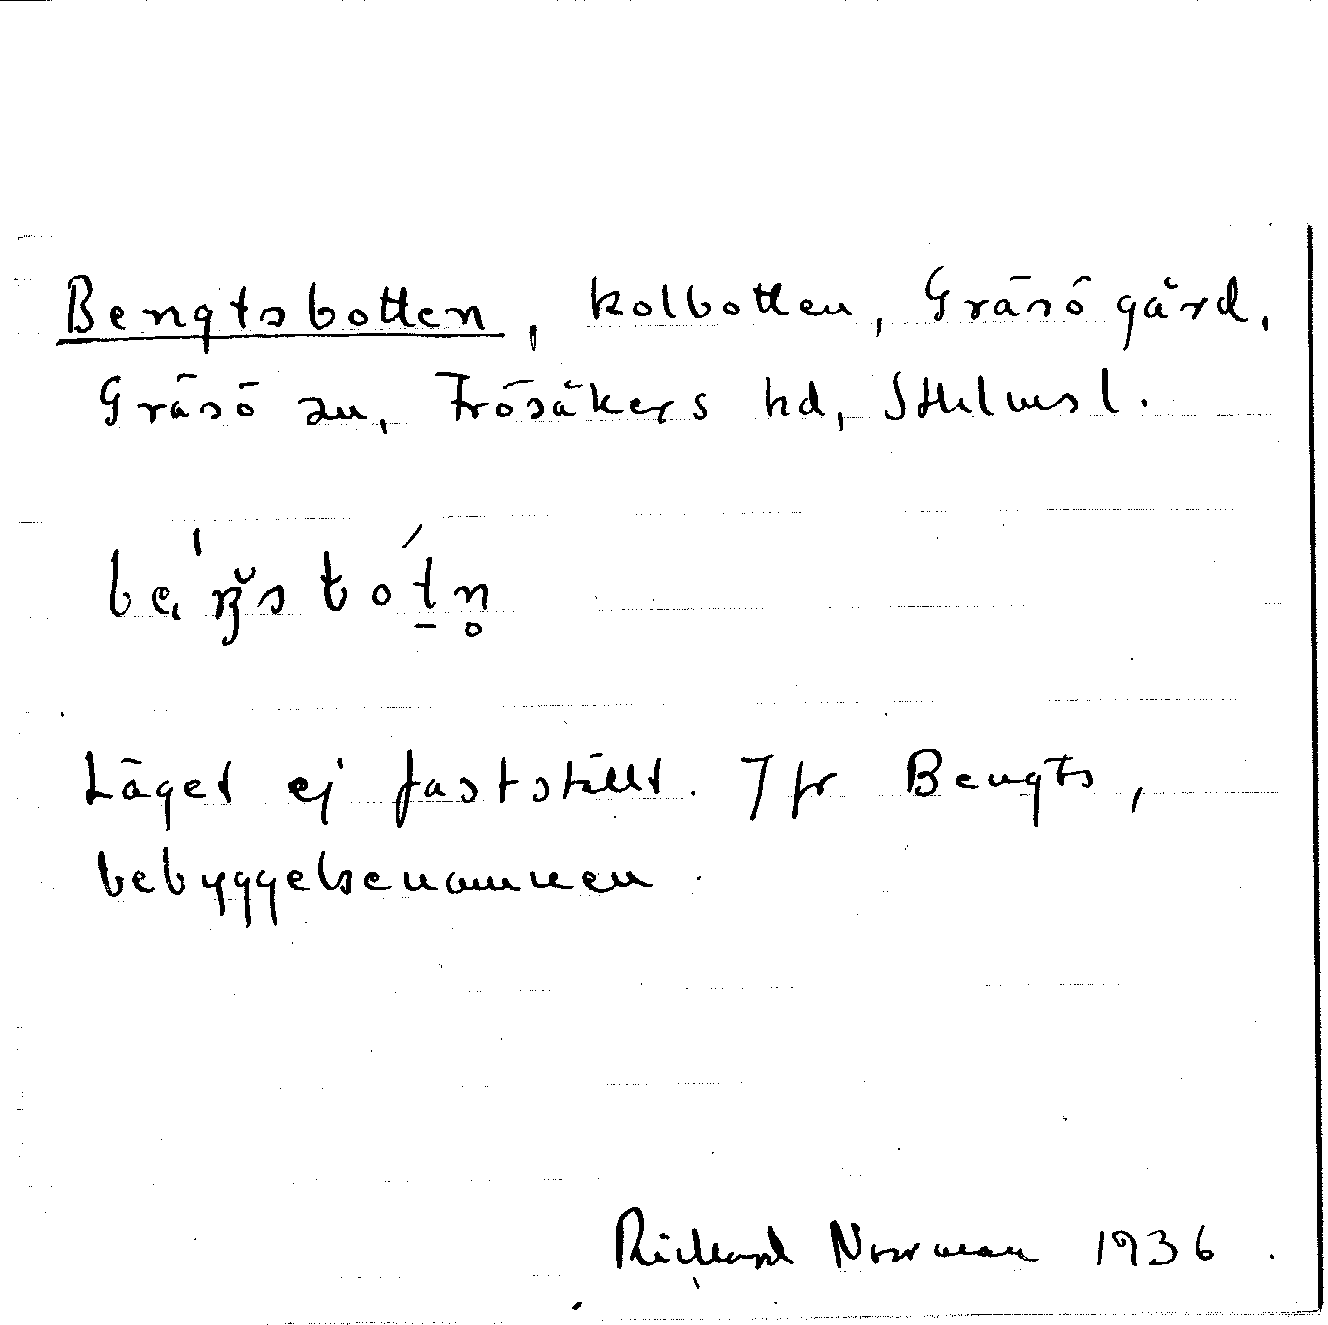 Bengtsbotten, kolbotten, Gräsö gård,
Gräsö sn, Frösäkers hd, Sthlmsl.
Läget ej fastställt. Jfr Bengts,
bebyggelsenamnen.
Richard Norrman 1936.